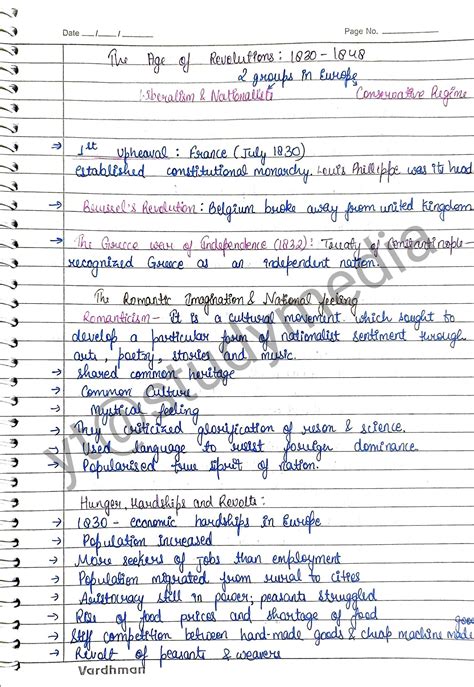 Date __/__/__ Page No. ______
The Age of Revolutions: 1830 - 1848
2 groups in Europe
Liberalism & Nationalists Conservative Regime
→ 1st upheaval : France (July 1830)
established constitutional monarchy. Louis Phillippe was its head
→ Brussel's Revolution : Belgium broke away from united kingdom
→ The Greece war of Independence (1832) : Treaty of Constantinople-
recognized Greece as an independent nation.
The Romantic Imagination & National feeling
Romanticism - It is a cultural movement which sought to
develop a particular form of nationalist sentiment through
arts, poetry, stories and music.
→ shared common heritage
→ Common Culture
→ Mystical feeling
→ They criticized glorification of reson & science.
→ Used language to resist foreign dominance.
→ Popularised true spirit of nation.
Hunger, Hardships and Revolts:
→ 1830 - economic hardships in Europe
→ Population increased
→ More seekers of jobs than employment
→ Population migrated from rural to cities
→ Aristocracy still in power, peasants struggled
→ Rise of food prices and shortage of food
→ Stiff competition between hand-made goods & cheap machine made goods
→ Revolt of peasants & weavers
Vardhman
yt@studymedia